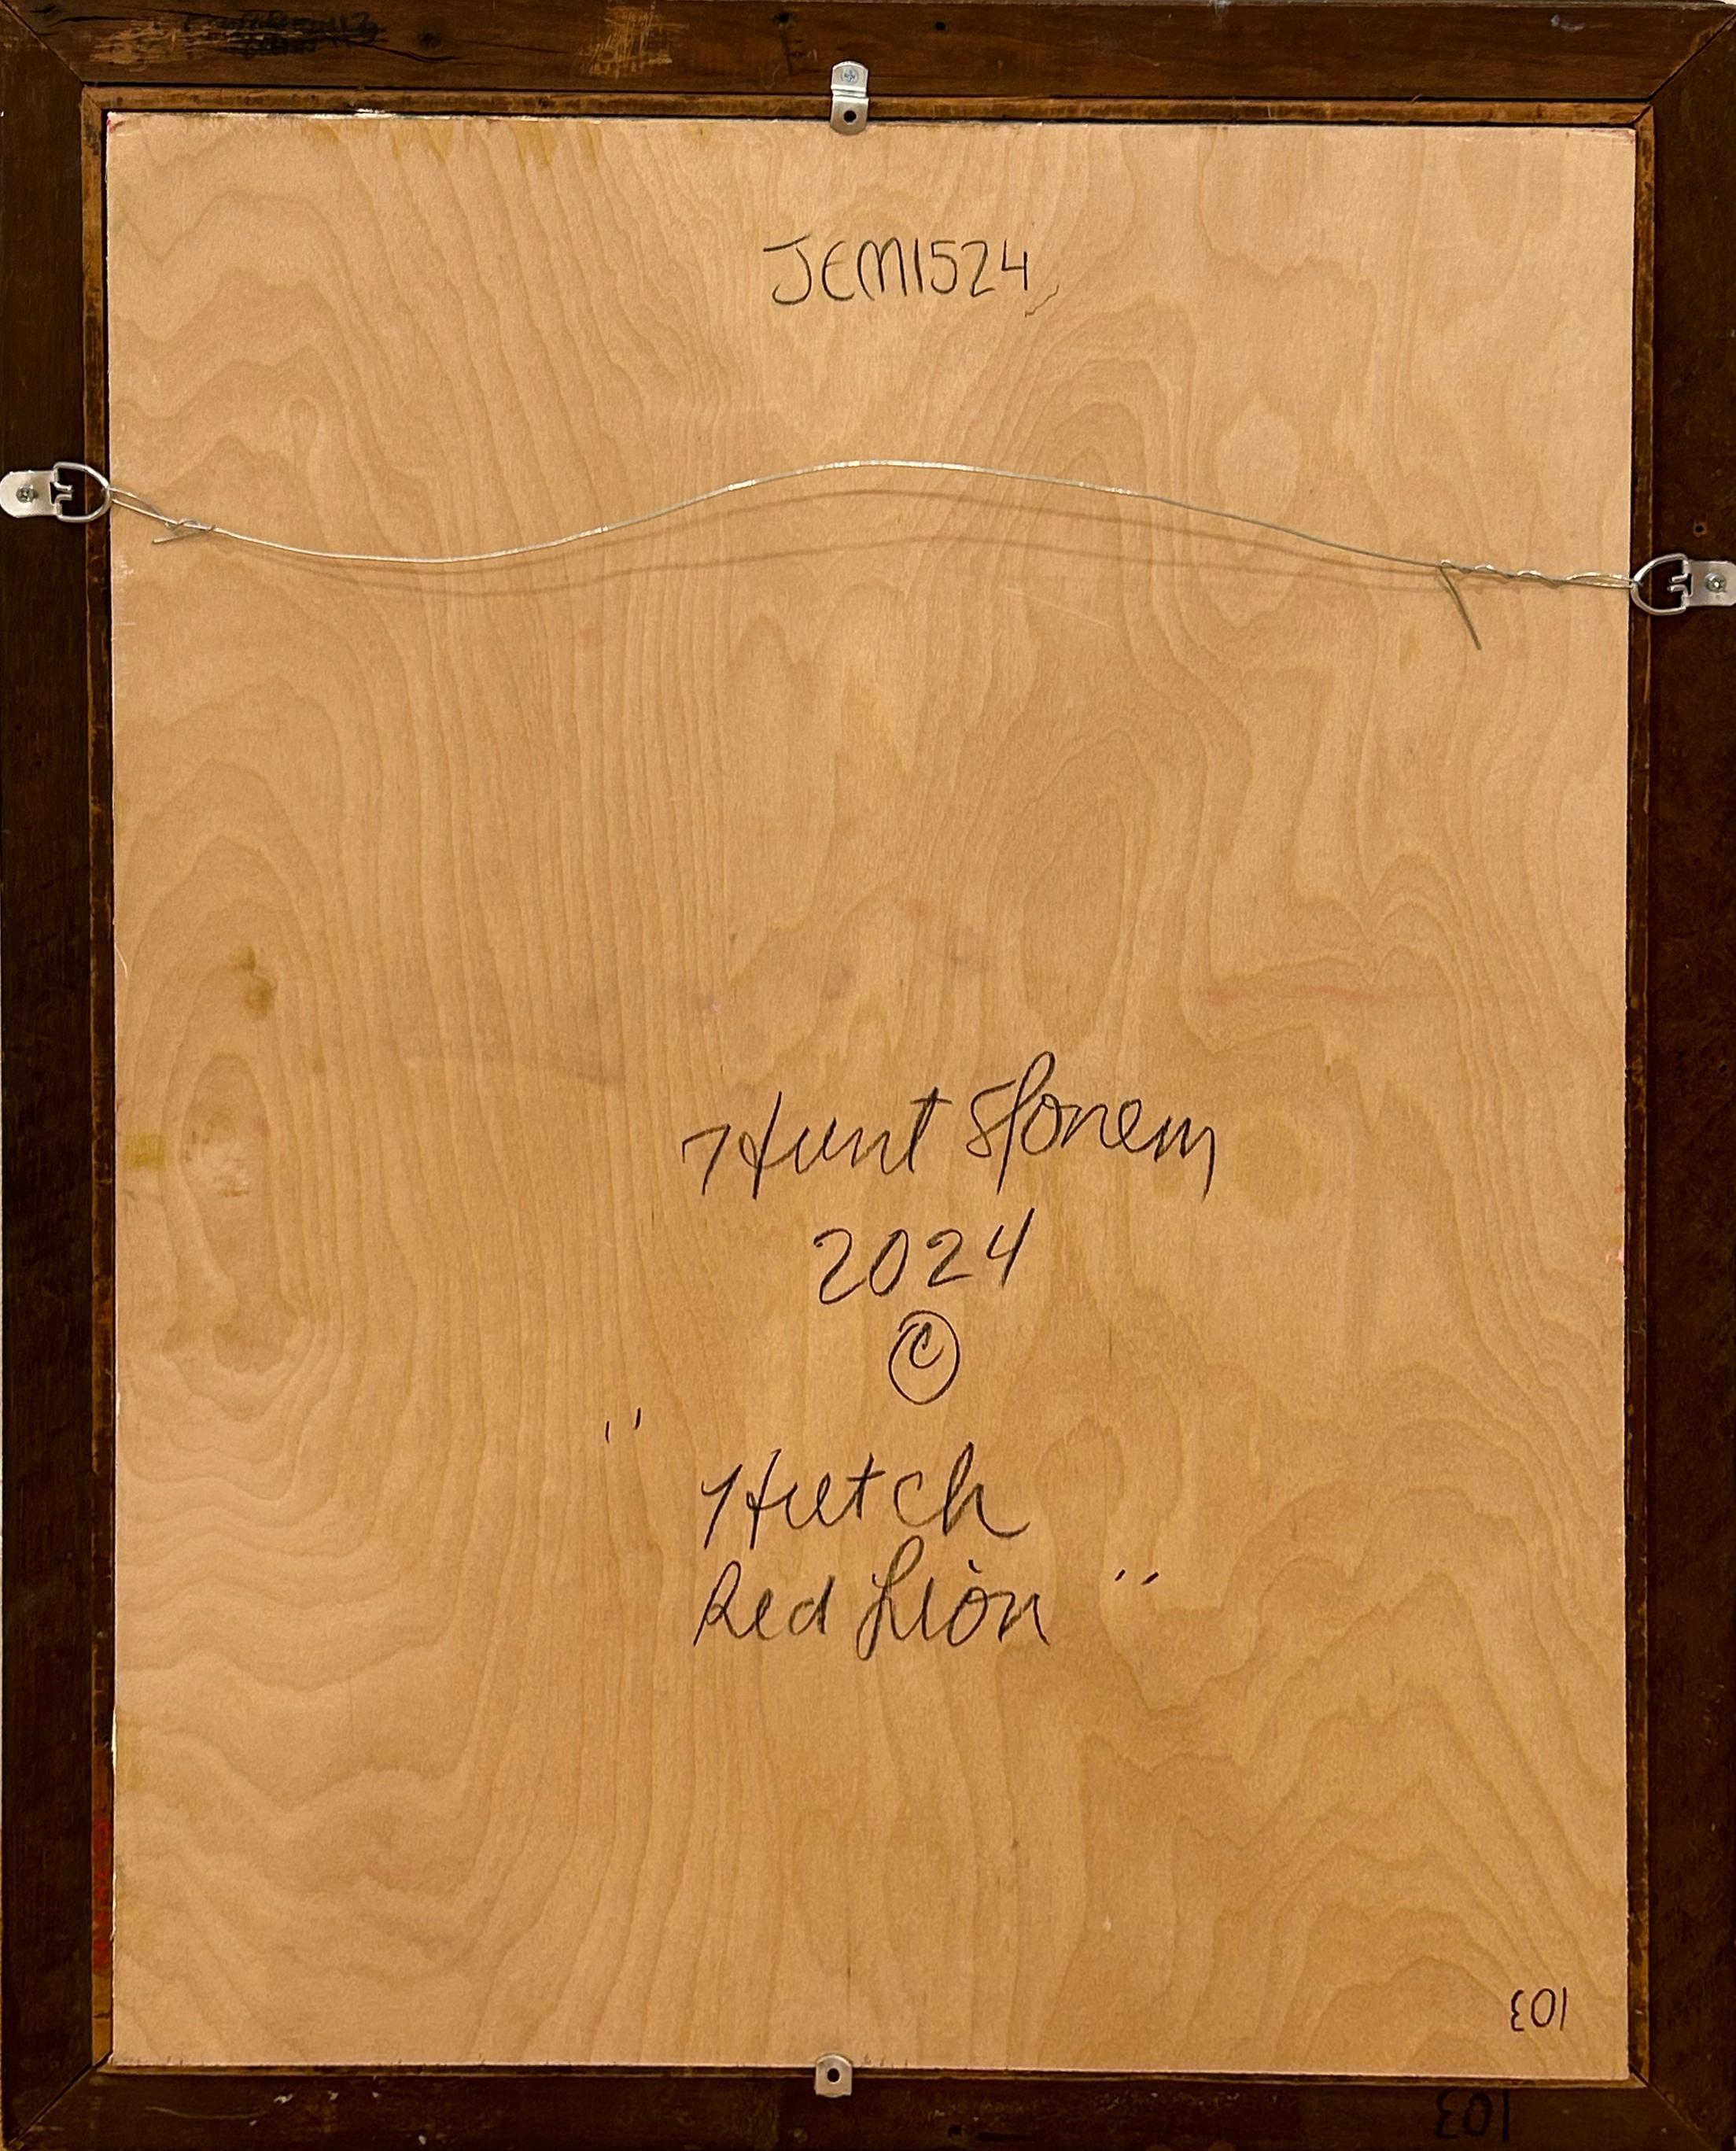 JEM1524
Hunt Slonem
2024
©
"Hutch
Red Lion"
103
103